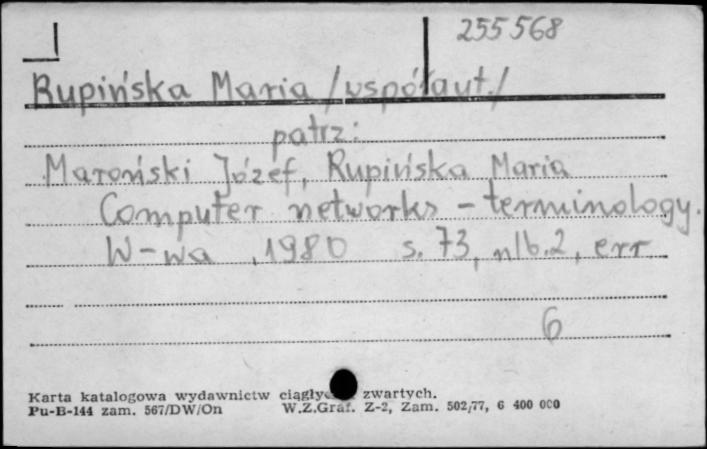 255568
Rupińska Maria /współaut./
patrz:
Maroński Józef, Rupińska Maria
Computer networks - terminology.
W-wa, 1980 s. 73, nlb. 2, err
6
Karta katalogowa wydawnictw zwartych.
Pu-B-144 zam. 567/DW/On W.Z.Graf. Z-2, Zam. 502/77, 6 400 000